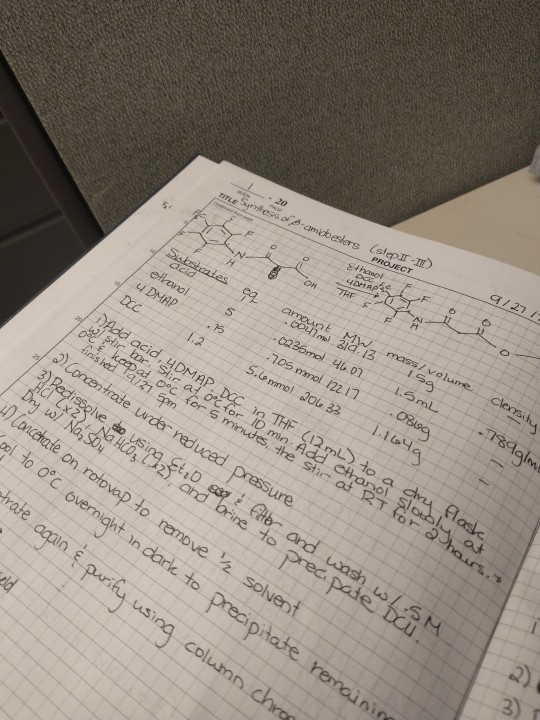 1
20
BOOK
PAGE
TITLE Synthesis of β-amidoesters (step II-III)
PROJECT
9/27/
F
F
F
N
H
O
O
OH
Ethanol
DCC
4DMAP
THF
F
F
F
N
H
O
O
O
Substrates eq amount MW mass/volume density
acid 1 .0047mol 319.13 1.5g
ethanol 5 .0235mol 46.07 1.5mL .789g/mL
4DMAP .15 .705 mmol 122.17 .086g -
DCC 1.2 5.6mmol 206.33 1.164g -
1) Add acid, 4DMAP, DCC in THF (12mL) to a dry flask
w/ stir bar. Stir at 0°C for 10 min. Add ethanol slowly at
0°C & keep at 0°C for 5 minutes, the stir at RT for 24 hours.
finished 9/27 5pm
2) Concentrate under reduced pressure
3) Redissolve using Et2O & filter and wash w/ .5M
HCl (x2), NaHCO3 (x2), and brine to precipitate DCU.
Dry w/ Na2SO4
4) Concentrate on rotovap to remove 1/2 solvent
to 0°C overnight in dark to precipitate remaining
again & purify using column
1
2)
3)